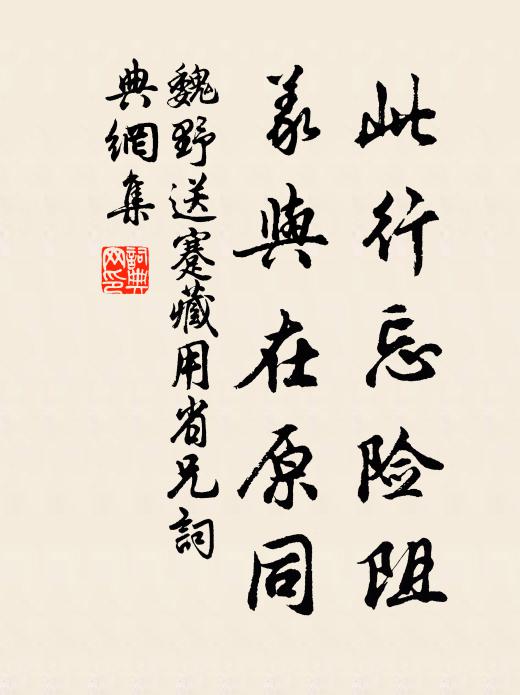 此行忘险阻
義與在原同
魏野送蹇藏用省兄詞
典網集
詞典网印